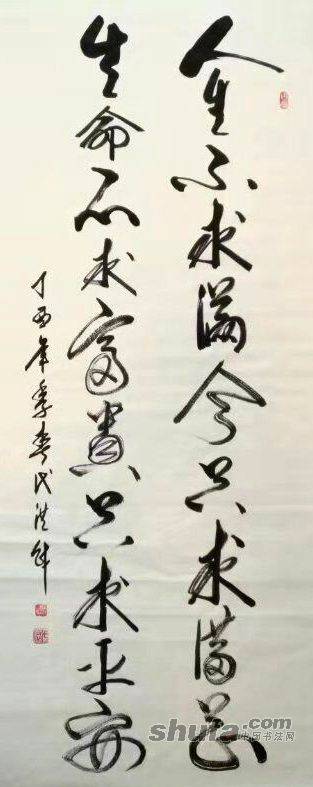 人生不求满分只求满意
生命不求富贵只求平安
丁酉年季春
shufa.com
中国书法网